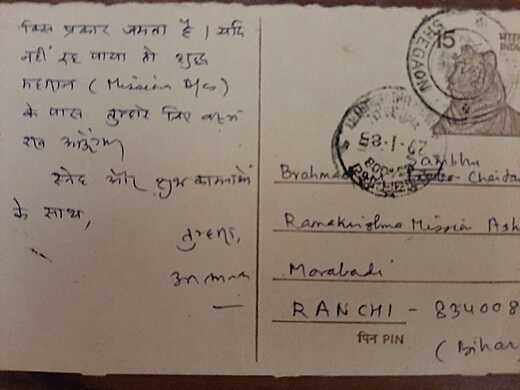 किस प्रकार जमता है। यदि
नहीं रह पाया तो शुद्ध
(Mission
के पास तुम्हारे लिए
रख आऊँगा
स्नेह और शुभ कामनाओं
के साथ,
तुम्हारा,
15
भारत
INDIA
SHEGAON
29-1-85
Brahmachari
Sambhu
Chaitanya
Ramakrishna Mission Ash
Morabadi
RANCHI - 834008
पिन PIN
(Bihar